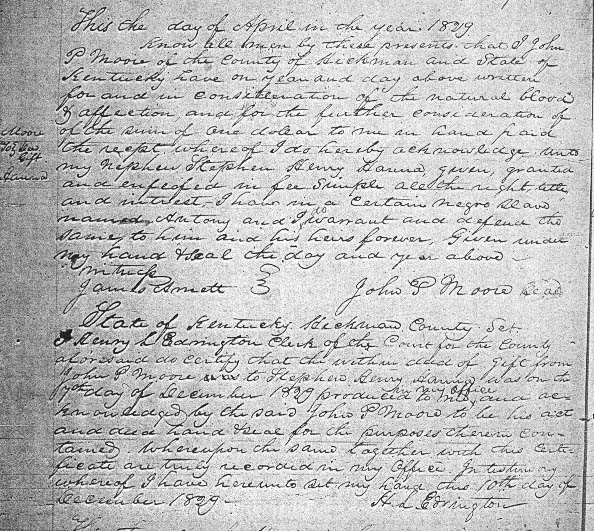 This the day of April in the year 1829
Know all men by these presents that I John
P Moore of the County of Hickman and State of
Kentucky have on year and day above written
for and in consideration of the natural blood
& affection, and for the further consideration of
of the sum of one dollar to me in hand paid
the recpt whereof I do hereby acknowledge unto
my Nephew Stephen Henry Hanna, given, granted
and enfeofed in fee simple all the right title
and intrest I have in a certain negro slave
named Antony and I warrant and defend the
same to him and his heirs forever, Given under
my hand & seal the day and year above
writen
James
John P Moore Seal
Moore
To Deed
Gift
Hanna
State of Kentucky Hickman County Sct.
I Henry L Edrington Clerk of the Court for the County
aforesaid do certify that the within deed of Gift from
John P Moore to Stephen Henry Hanna was on the
7th day of December 1829 produced to me in my Office and ac
knowledged by the said John P Moore to be his act
and deed hand & seal for the purposes therein con-
tained, Whereupon the same together with this Certi-
ficate are truly recorded in my Office. In testimony
whereof I have hereunto set my hand this 10th day of
December 1829 -
H L Edrington